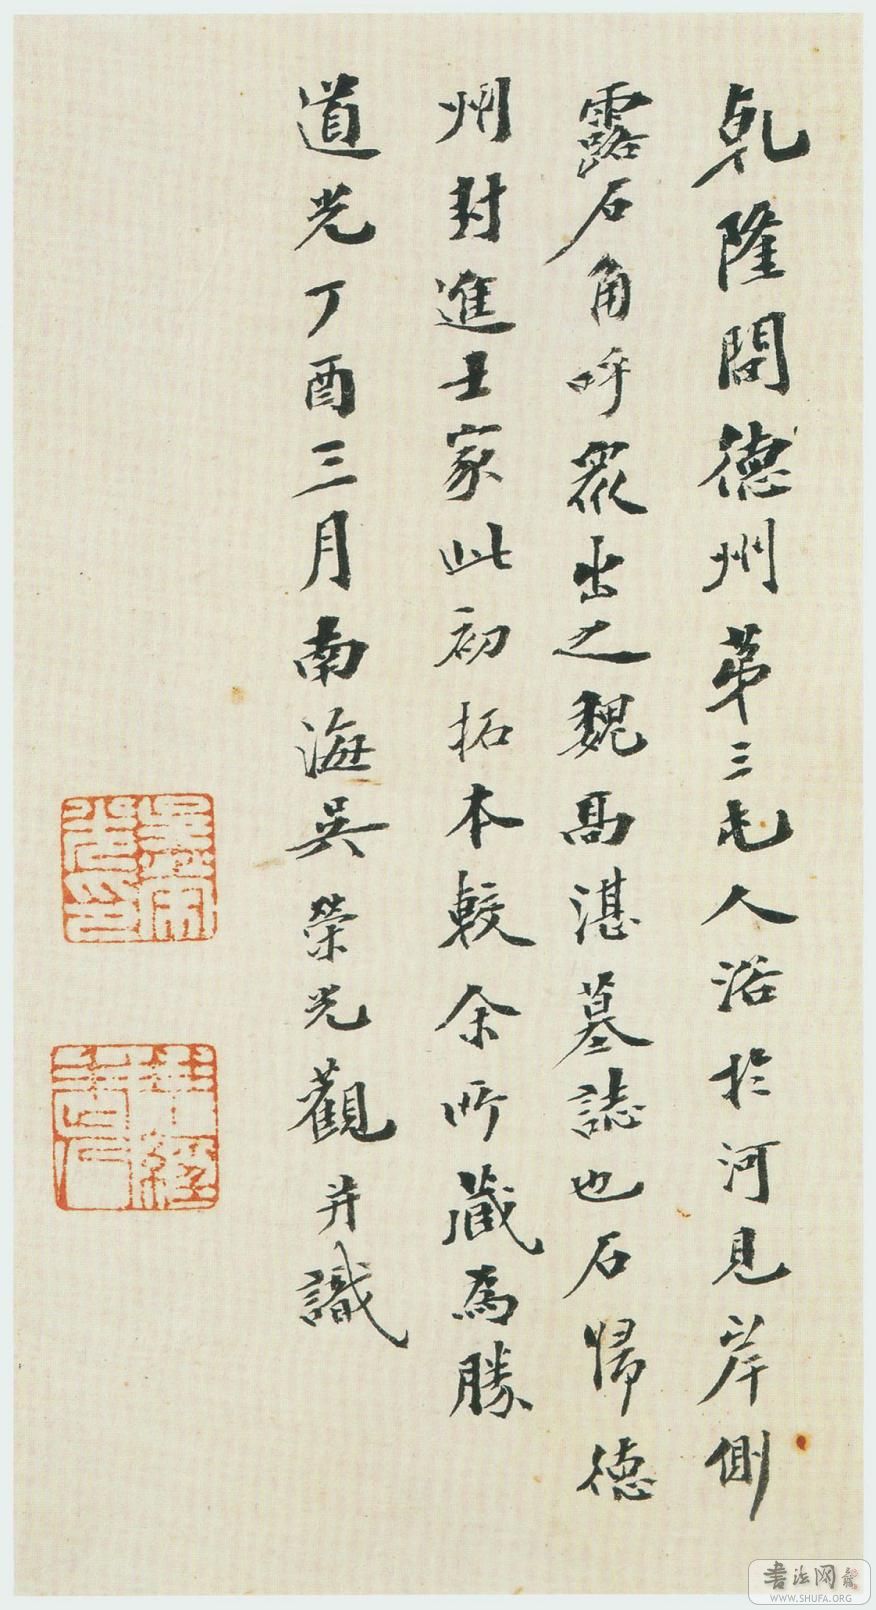 乹隆間德州苐三屯人浴於河見岸側
露石角呼眾出之魏高湛墓誌也石歸德
州封進士家此初拓本較余所藏為勝
道光丁酉三月南海吳榮光觀并識
吳榮光印
書法网
WWW.SHUFA.ORG